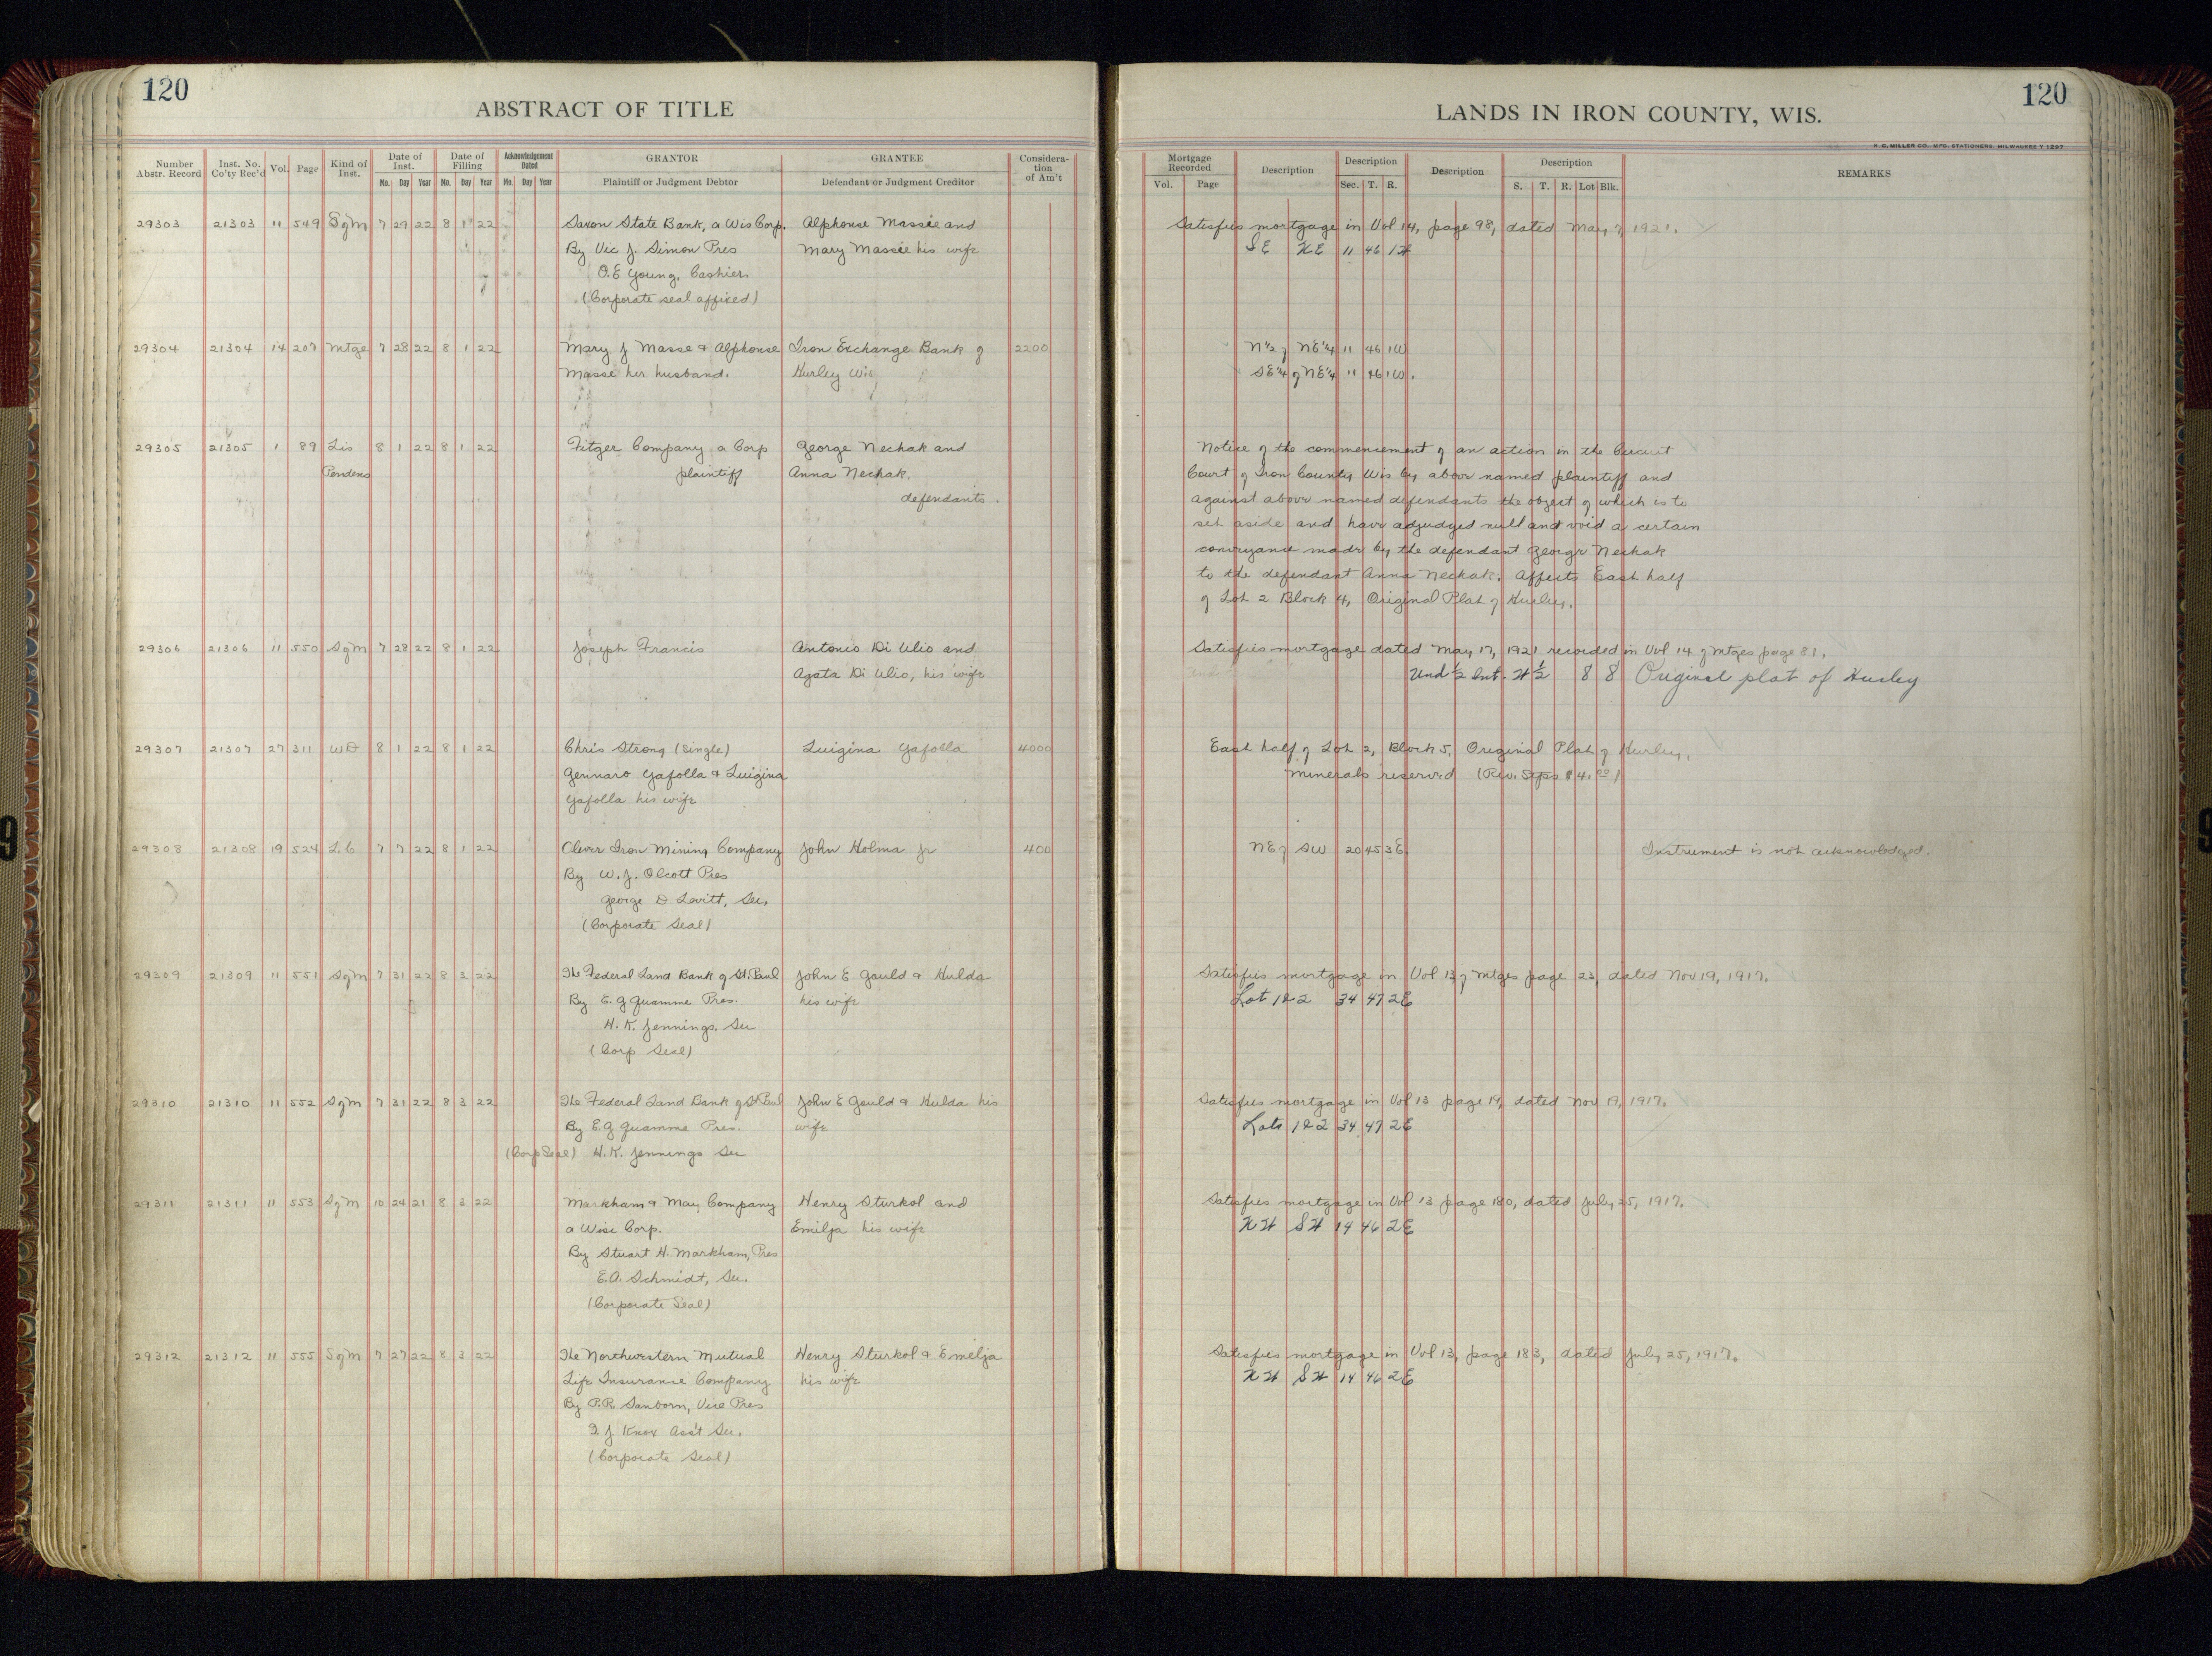 120
ABSTRACT OF TITLE
Number Abstr. Record
Inst. No. Co'ty Rec'd
Vol.
Page
Kind of Inst.
Date of Inst.
Mo. Day Year
Date of Filing
Mo. Day Year
Acknowledgement Dated
Mo. Day Year
GRANTOR
Plaintiff or Judgment Debtor
GRANTEE
Defendant or Judgment Creditor
Consideration of Am't
29303 21303 11 549 SgM 7 29 22 8 1 22 Saxon State Bank, a Wis Corp. Alphonse Massie and
By Vic J. Simon Pres Mary Massie his wife
O.E Young, Cashier
(Corporate seal affixed)
29304 21304 14 207 Mtge 7 28 22 8 1 22 Mary J Masse & Alphonse Iron Exchange Bank of 2200
Masse her husband. Hurley Wis
29305 21305 1 89 Lis 8 1 22 8 1 22 Fitger Company a Corp George Nechak and
Pendens plaintiff Anna Nechak.
defendants.
29306 21306 11 550 SgM 7 28 22 8 1 22 Joseph Francis Antonio Di Ulio and
Agata Di Ulio, his wife
29307 21307 27 311 WD 8 1 22 8 1 22 Chris Strong (single) Luigina Yafolla 4000
Gennaro Yafolla & Luigina
Yafolla his wife
29308 21308 19 524 L.C 7 7 22 8 1 22 Oliver Iron Mining Company John Holma Jr 400
By W.J. Olcott Pres
George D Levitt, Sec.
(Corporate Seal)
29309 21309 11 551 SgM 7 31 22 8 3 22 The Federal Land Bank of St. Paul John E Gauld & Hulda
By E.G Quamme Pres. his wife
H.K. Jennings, Sec
(Corp Seal)
29310 21310 11 552 SgM 7 31 22 8 3 22 The Federal Land Bank of St Paul John E Gauld & Hulda his
By E.G Quamme Pres. wife
(Corp Seal) H.K. Jennings Sec
29311 21311 11 553 SgM 10 24 21 8 3 22 Markham & May Company Henry Sturkol and
a Wisc Corp. Emilja his wife
By Stuart H. Markham, Pres
E.A. Schmidt, Sec.
(Corporate Seal)
29312 21312 11 555 SgM 7 27 22 8 3 22 The Northwestern Mutual Henry Sturkol & Emelja
Life Insurance Company his wife
By P.R. Sanborn, Vice Pres
J Knox Ass't Sec.
(Corporate Seal)
120
LANDS IN IRON COUNTY, WIS.
H. C. MILLER CO. MFG. STATIONERS, MILWAUKEE
Mortgage Recorded
Vol. Page
Description
Description
Sec. T. R.
Description
Description
S. T. R. Lot Blk.
REMARKS
Satisfies mortgage in Vol 14, page 98, dated May 7, 1921.
SE NE 11 46 1W
N 1/2 of NE 1/4 11 46 1W
SE 1/4 of NE 1/4 11 46 1W.
Notice of the commencement of an action in the Circuit
Court of Iron County Wis by above named plaintiff and
against above named defendants the object of which is to
set aside and have adjudged null and void a certain
conveyance made by the defendant George Nechak
to the defendant Anna Nechak. Affects East half
of Lot 2 Block 4, Original Plat of Hurley.
Satisfies mortgage dated May 17, 1921 recorded in Vol 14 of Mtges page 81.
Und 1/2 Int. W 1/2 8 8 Original plat of Hurley
East half of Lot 2, Block 5, Original Plat of Hurley.
Minerals reserved (Rev. Stps $4.00)
NE of SW 20 45 3E Instrument is not acknowledged.
Satisfies mortgage in Vol 13 of Mtges page 23, dated Nov 19, 1917.
Lot 1&2 34 47 2E
Satisfies mortgage in Vol 13 page 19, dated Nov 19, 1917.
Lots 1&2 34 47 2E
Satisfies mortgage in Vol 13 page 180, dated July 25, 1917.
NW SW 14 46 2E
Satisfies mortgage in Vol 13, page 183, dated July 25, 1917.
NW SW 14 46 2E